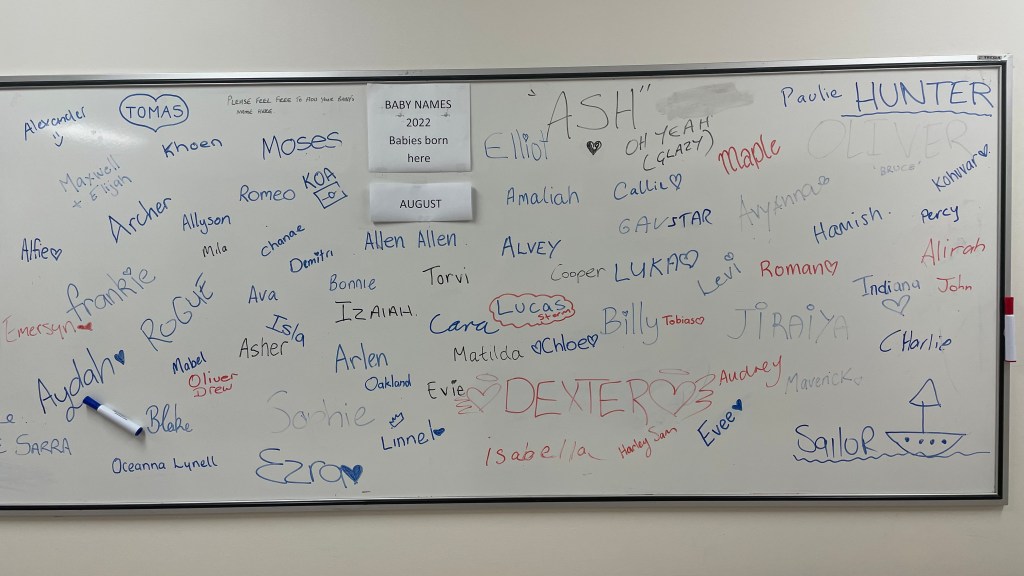 Alexander
TOMAS
PLEASE FEEL FREE TO ADD YOUR BABY'S
NAME HERE
BABY NAMES
2022
Babies born
here
AUGUST
"ASH"
Paulie
HUNTER
Khoen
MOSES
Elliot
OH YEAH
(GLAZY)
Maple
OLIVER
"BRUCE"
Maxwell
+ Elijah
Romeo
KOA
Amaliah
Callie
Avyanna
Archer
Allyson
Mila
Chanae
Demitri
Allen Allen
ALVEY
GAVSTAR
Hamish.
Percy
Alfie
Alirah
frankie
ROGUE
Ava
Bonnie
Torvi
Cooper
LUKA
Levi
Roman
Indiana
John
Emersyn
Isla
IZAIAH.
Cara
Lucas
Storm
Billy
Tobias
JIRAIYA
Charlie
Asher
Arlen
Matilda
Chloe
Aydah
Mabel
Oliver
Drew
Oakland
Evie
DEXTER
Audrey
Maverick
Blake
Sophie
Linnel
Evee
SARRA
Oceanna Lynell
Ezra
isabella
Harley Sam
SAILOR